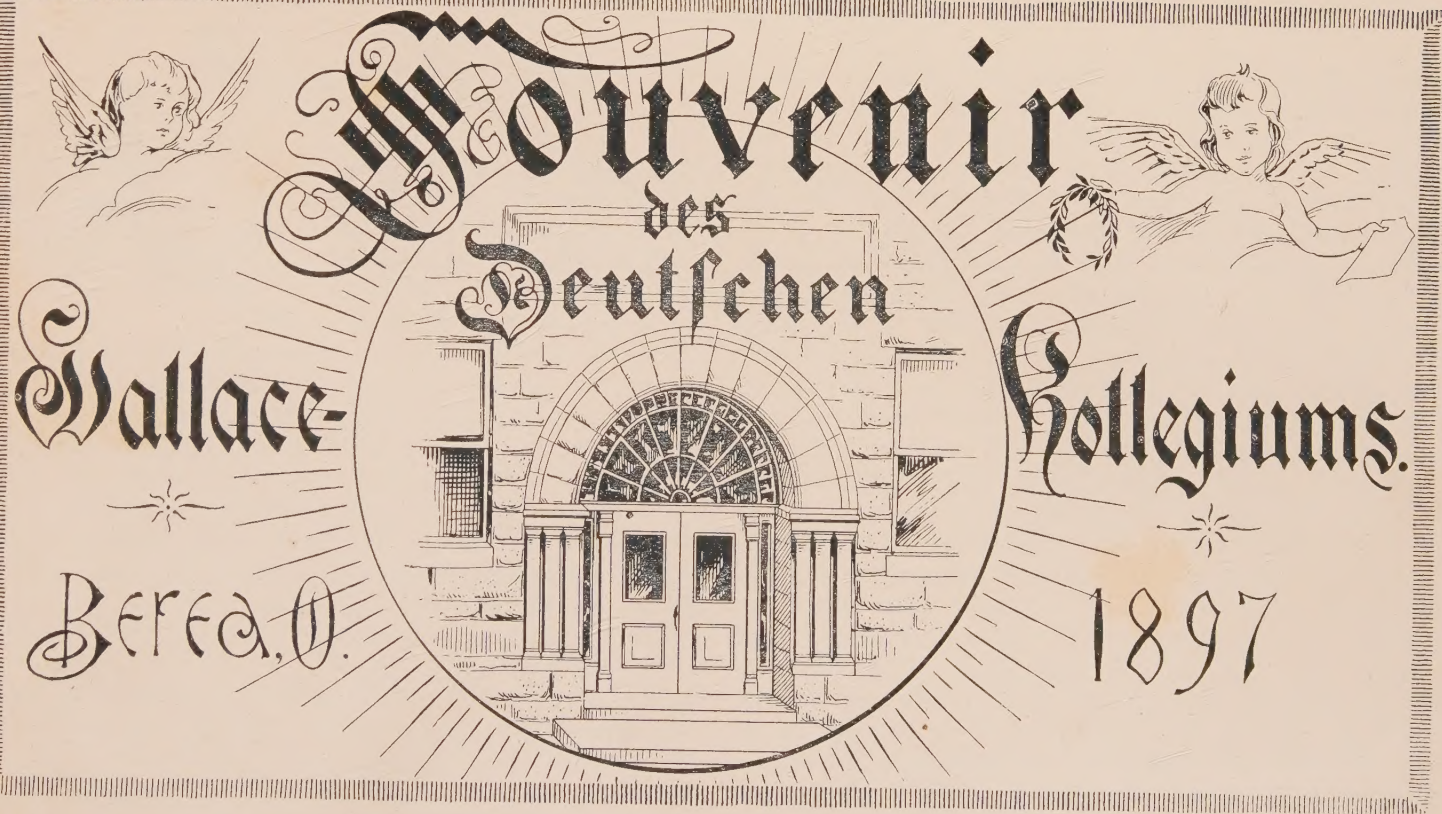 Souvenir
des
Deutſchen
Wallace- Kollegiums.
Berea, O. 1897